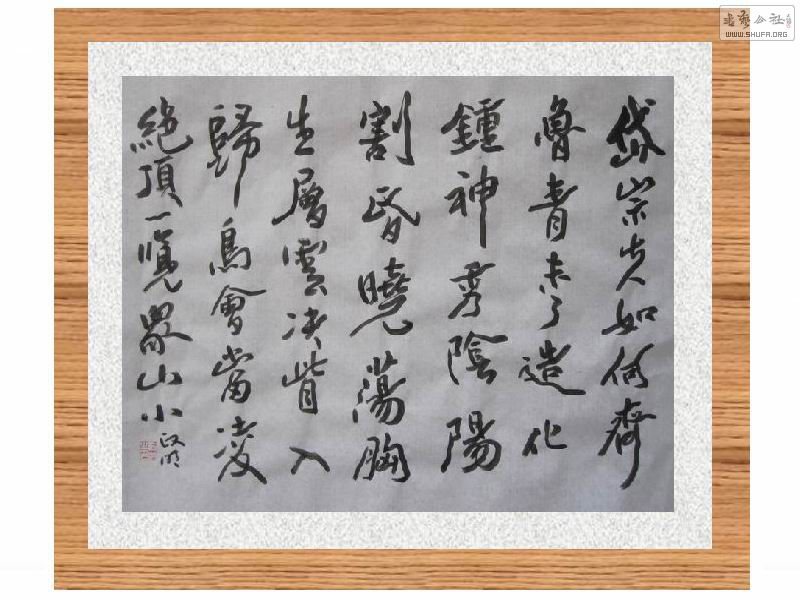 岱宗夫如何齊
魯青未了造化
鍾神秀陰陽
割昏曉蕩胸
生層雲決眥入
歸鳥會當凌
絕頂一覽眾山小
書藝公社
WWW.SHUFA.ORG